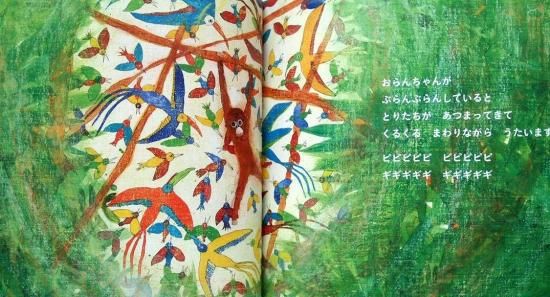 おらんちゃんが
ぶらんぶらんしていると
とりたちが　あつまってきて
くるくる　まわりながら　うたいます
ピピピピピ　ピピピピピ
ギギギギギ　ギギギギギ